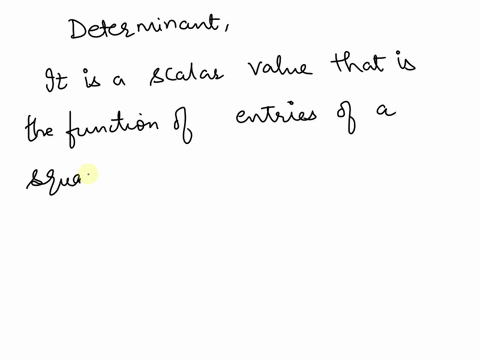 Determinant,
It is a scalar value that is
the function of entries of a
squa